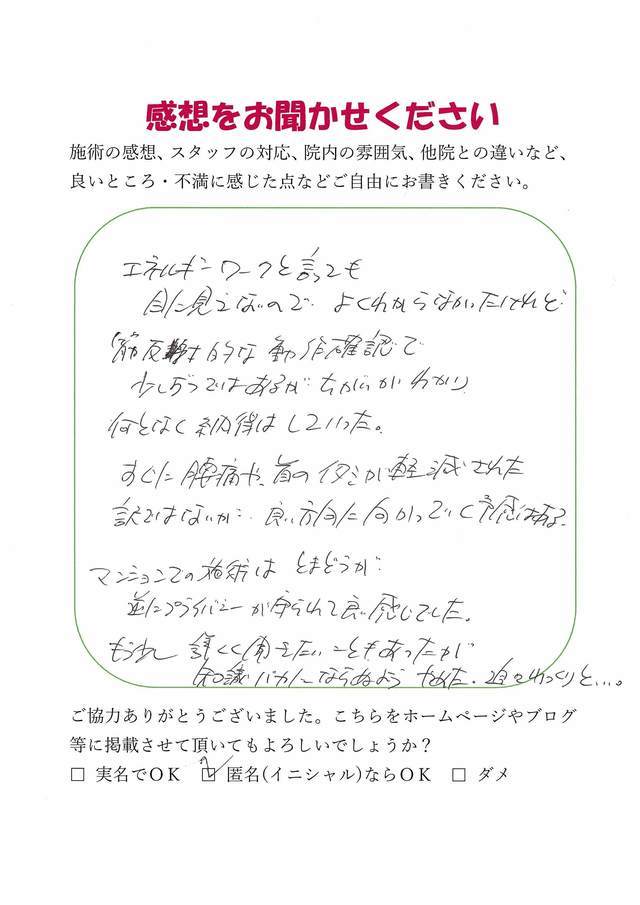 感想をお聞かせください
施術の感想、スタッフの対応、院内の雰囲気、他院との違いなど、
良いところ・不満に感じた点などご自由にお書きください。
エネルギーワークと言っても
目に見えないので よくわからなかったけれど
筋反射的な動作確認で
少しずつではあるが ちがいがわかり
何となく納得はしていった。
すぐに腰痛や、首のイタミが軽減された
訳ではないが… 良い方向に向かっていく予感はある。
マンションでの施術は とまどうが
逆にプライバシーが守られて良い感じでした。
もう少し 詳しく聞きたいこともあったが
知識バカにならぬよう やめた。追々ゆっくりと…。
ご協力ありがとうございました。こちらをホームページやブログ
等に掲載させて頂いてもよろしいでしょうか？
□ 実名でOK ☑ 匿名(イニシャル)ならOK □ ダメ